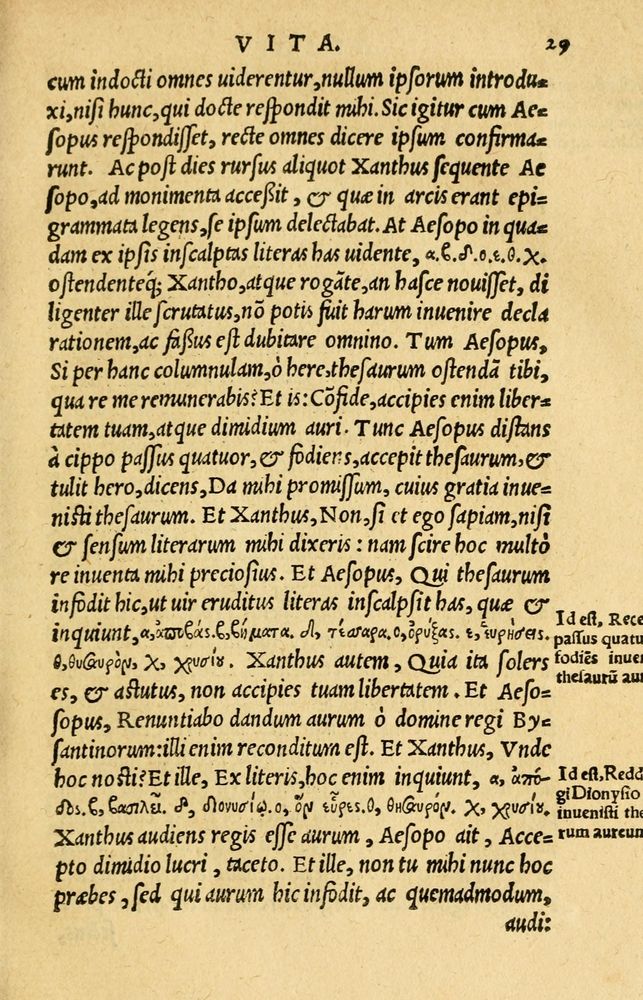 VITA. 29
cum indocti omnes uiderentur, nullum ipsorum introdu-
xi, nisi hunc, qui docte respondit mihi. Sic igitur cum Ae-
sopus respondisset, recte omnes dicere ipsum confirma-
runt. Ac post dies rursus aliquot Xanthus sequente Ae
sopo, ad monimenta acceßit, & quæ in arcis erant epi-
grammata legens, se ipsum delectabat. At Aesopo in qua-
dam ex ipsis inscalptas literas has uidente, α.β.δ.ο.ε.θ.χ.
ostendenteq́; Xantho, atque rogāte, an hasce nouisset, di
ligenter ille scrutatus, nō potis fuit harum inuenire decla
rationem, ac faßus est dubitare omnino. Tum Aesopus,
Si per hanc columnulam, ò here, thesaurum ostendā tibi,
qua re me remunerabis? Et is: Cōfide, accipies enim liber-
tatem tuam, atque dimidium auri. Tunc Aesopus distans
à cippo passus quatuor, & fodiens, accepit thesaurum, &
tulit hero, dicens, Da mihi promissum, cuius gratia inue-
nisti thesaurum. Et Xanthus, Non, si et ego sapiam, nisi
& sensum literarum mihi dixeris: nam scire hoc multò
re inuenta mihi preciosius. Et Aesopus, Qui thesaurum
infodit hic, ut uir eruditus literas inscalpsit has, quæ &
inquiunt, α, ἀποβὰς. β, βήματα. δ, τέσσαρα. ο, ὀρύξας. ε, εὑρήσεις.
θ, θησαυρὸν, χ, χρυσίου. Xanthus autem, Quia ita solers
es, & astutus, non accipies tuam libertatem. Et Aeso-
sopus, Renuntiabo dandum aurum ò domine regi By-
santinorum: illi enim reconditum est. Et Xanthus, Vnde
hoc nosti? Et ille, Ex literis, hoc enim inquiunt, α, ἀπό-
δος. β, βασιλεῖ. δ, Διονυσίῳ. ο, ὃν εὗρες. θ, θησαυρόν. χ, χρυσίου.
Xanthus audiens regis esse aurum, Aesopo ait, Acce-
pto dimidio lucri, taceto. Et ille, non tu mihi nunc hoc
præbes, sed qui aurum hic infodit, ac quemadmodum,
audi:
Id est, Rece
passus quatu
fodiēs inuen
thesaurū aur
Id est, Redd
gi Dionysio
inuenisti the
rum aureum